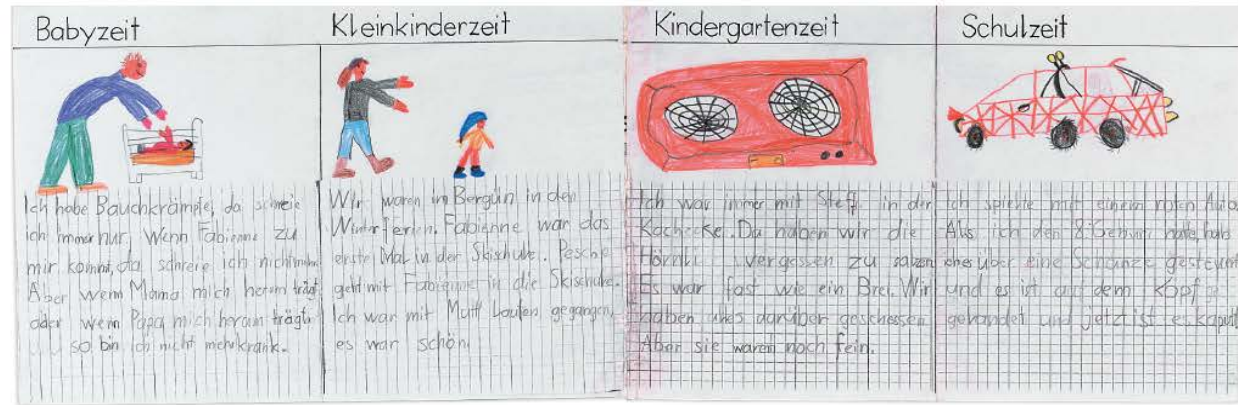 Babyzeit
Ich habe Bauchkrämpfe, da schreie
ich immer nur. Wenn Fabienne zu
mir kommt, da schreie ich nicht mehr.
Aber wenn Mama mich herum trägt
oder wenn Papa mich herum trägt
und so bin ich nicht mehr krank.
Kleinkinderzeit
Wir waren im Bergün in den
Winterferien. Fabienne war das
erste Mal in der Skischule. Pesche
geht mit Fabienne in die Skischule.
Ich war mit Matt Laufen gegangen,
es war schön.
Kindergartenzeit
Ich war immer mit Steff in der
Kochecke. Da haben wir die
Hörnli vergessen zu salzen
Es war fast wie ein Brei. Wir
haben alles darüber geschossen
Aber sie waren noch fein.
Schulzeit
Ich spielte mit einem roten Auto.
Als ich den 8. hatte, hab
über eine Schanze gesteuert
und es ist auf dem Kopf
gelandet und jetzt ist es kaputt